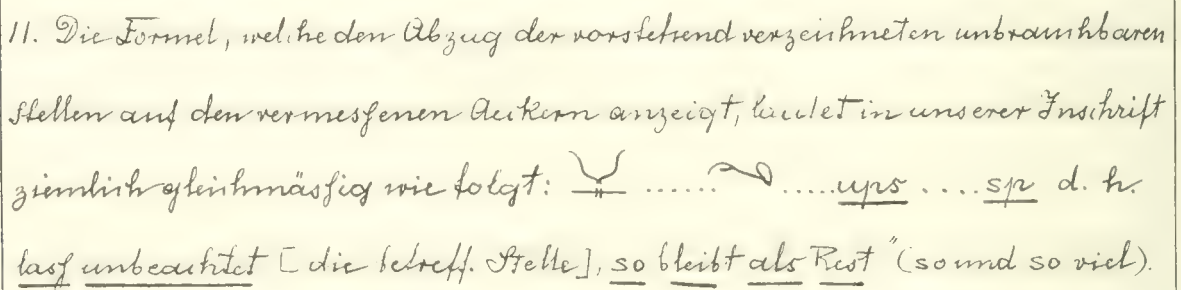 11. Die Formel, welche den Abzug der vorstehend verzeichneten unbrauchbaren
Stellen auf den vermessenen Aeckern anzeigt, lautet in unserer Inschrift
ziemlich gleichmässig wie folgt: ...... ..... ups .... sp d. h.
lass unbeachtet [die betreff. Stelle], so bleibt als Rest" (so und so viel).